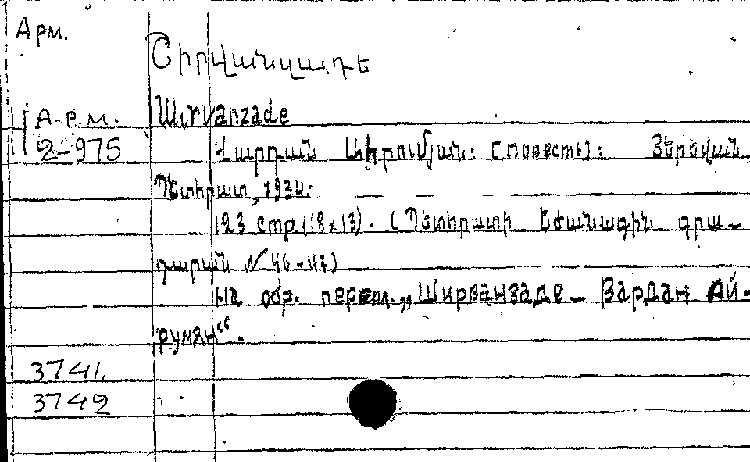 Арм.
Շիրվանզադե
А.р.м. Шırvanzade
2-975 Վարդան Ահրումյան. (повесть). Յերևան
Պետհրատ, 1934.
123 стр. (18x13). (Պետհրատի եժանագին գրա-
դարան № 46-47)
На обр. перепл. „Ширванзаде - Вардан Ай-
румян“.
3741.
3742